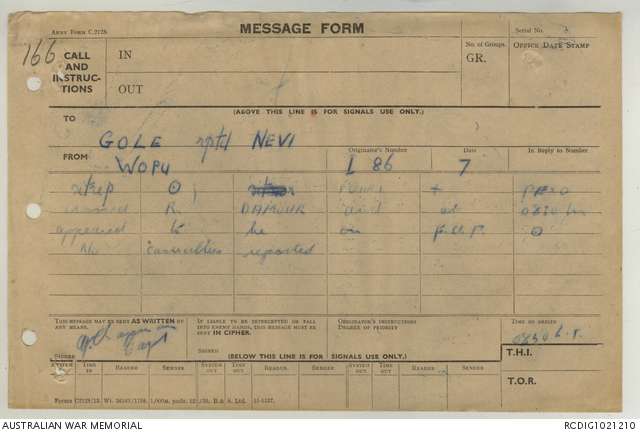 Army Form C.2128
MESSAGE FORM
Serial No.
166
CALL AND INSTRUC-TIONS
IN
OUT
No. of Groups.
GR.
Office Date Stamp
(ABOVE THIS LINE IS FOR SIGNALS USE ONLY.)
TO
GOLE rptd NEVI
FROM
WOPU
Originator's Number
L 86
Date
7
In Reply to Number
sitrep
PEZO
R. DAMOUR and at 0830 hrs
appeared to be on F.U.P.
No casualties reported
THIS MESSAGE MAY BE SENT AS WRITTEN BY ANY MEANS.
IF LIABLE TO BE INTERCEPTED OR FALL INTO ENEMY HANDS, THIS MESSAGE MUST BE SENT IN CIPHER.
ORIGINATOR'S INSTRUCTIONS
DEGREE OF PRIORITY
TIME OF ORIGIN
Capt
0830
SIGNED
SIGNED
(BELOW THIS LINE IS FOR SIGNALS USE ONLY.)
T.H.I.
SYSTEM IN
TIME IN
READER
SENDER
SYSTEM OUT
TIME OUT
READER
SENDER
SYSTEM OUT
TIME OUT
READER
SENDER
T.O.R.
AUSTRALIAN WAR MEMORIAL
RCDIG1021210